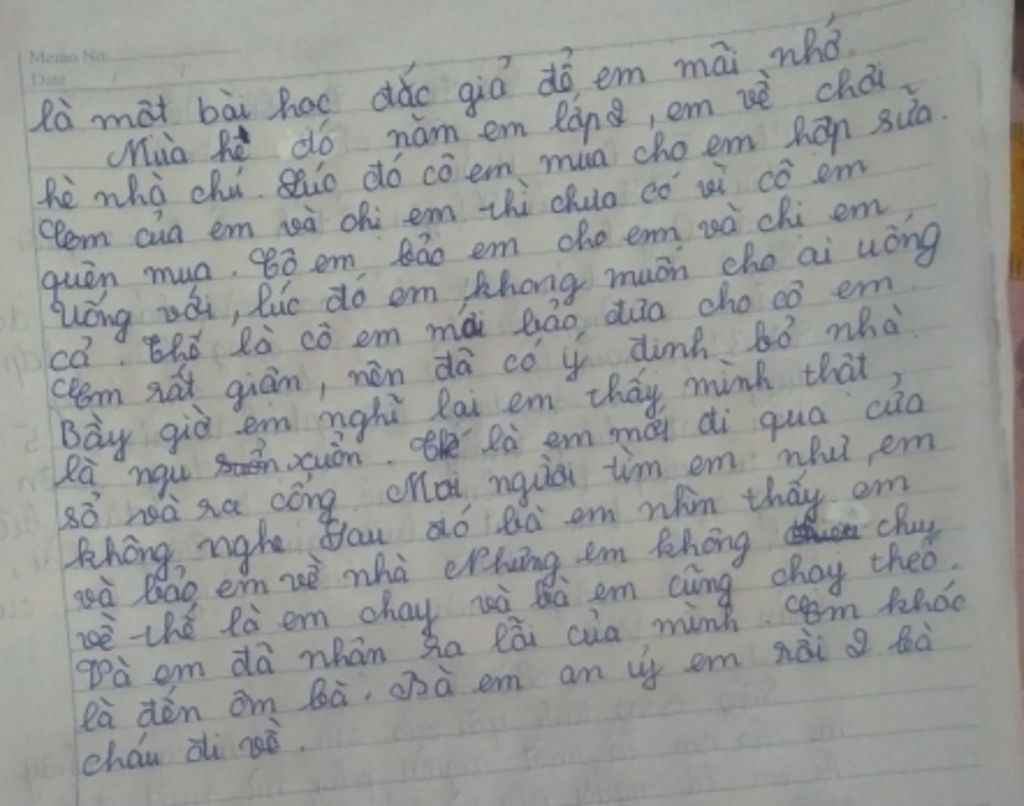 Memo No.
Date
là một bài học đắc giả để em mãi nhớ.
Mùa hè đó năm em lớp 2, em về chơi
hè nhà chú. Lúc đó cô em mua cho em hộp sữa.
Của em và chi em thì chưa có vì cô em
quên mua. Cô em bảo em cho em và chi em
uống với, lúc đó em không muốn cho ai uống
cả. Thế là cô em mới bảo đưa cho cô em.
Em rất giận, nên đã có ý định bỏ nhà.
Bầy giờ em nghĩ lại em thấy mình thật
là ngu xuẩn. Thế là em mới đi qua cửa
sổ và ra cổng. Mọi người tìm em nhưi em
không nghe. Sau đó bà em nhìn thấy em
và bảo em về nhà. Nhưng em không chuy
về thế là em chạy và bà em cũng chạy theo.
Và em đã nhận ra lỗi của mình. Em khóc
là đến ôm bà. Bà em an uỷ em rồi 2 bà
cháu đi về.